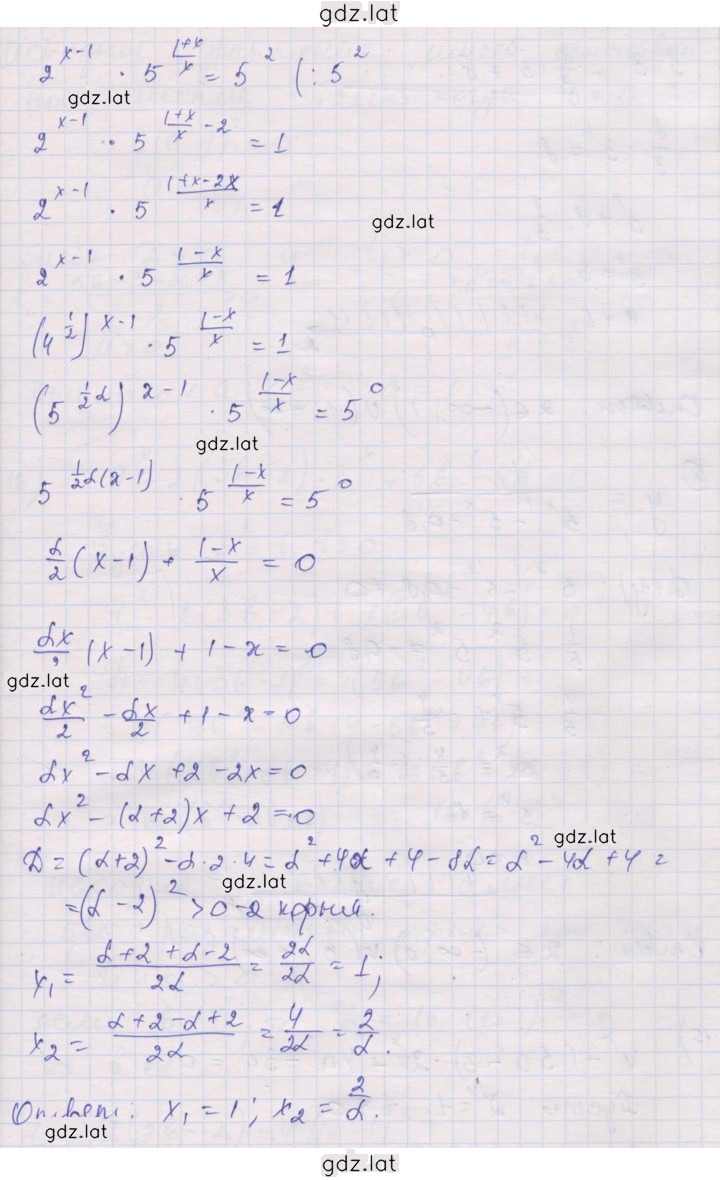 gdz.lat
2^(x-1) · 5^((1+x)/x) = 5^2 (: 5^2
gdz.lat
2^(x-1) · 5^((1+x)/x - 2) = 1
2^(x-1) · 5^((1+x-2x)/x) = 1
gdz.lat
2^(x-1) · 5^((1-x)/x) = 1
(4^(1/2))^(x-1) · 5^((1-x)/x) = 1
(5^(1/2 α))^(x-1) · 5^((1-x)/x) = 5^0
gdz.lat
5^(1/2 α(x-1)) · 5^((1-x)/x) = 5^0
α/2 (x-1) + (1-x)/x = 0
αx/2 (x-1) + 1 - x = 0
gdz.lat
αx^2/2 - αx/2 + 1 - x = 0
αx^2 - αx + 2 - 2x = 0
αx^2 - (α+2)x + 2 = 0
gdz.lat
D = (α+2)^2 - α·2·4 = α^2 + 4α + 4 - 8α = α^2 - 4α + 4 =
gdz.lat
= (α-2)^2 > 0 - 2 корня.
x₁ = (α+2+α-2)/2α = 2α/2α = 1;
x₂ = (α+2-α+2)/2α = 4/2α = 2/α.
Ответ: x₁ = 1; x₂ = 2/α.
gdz.lat
gdz.lat